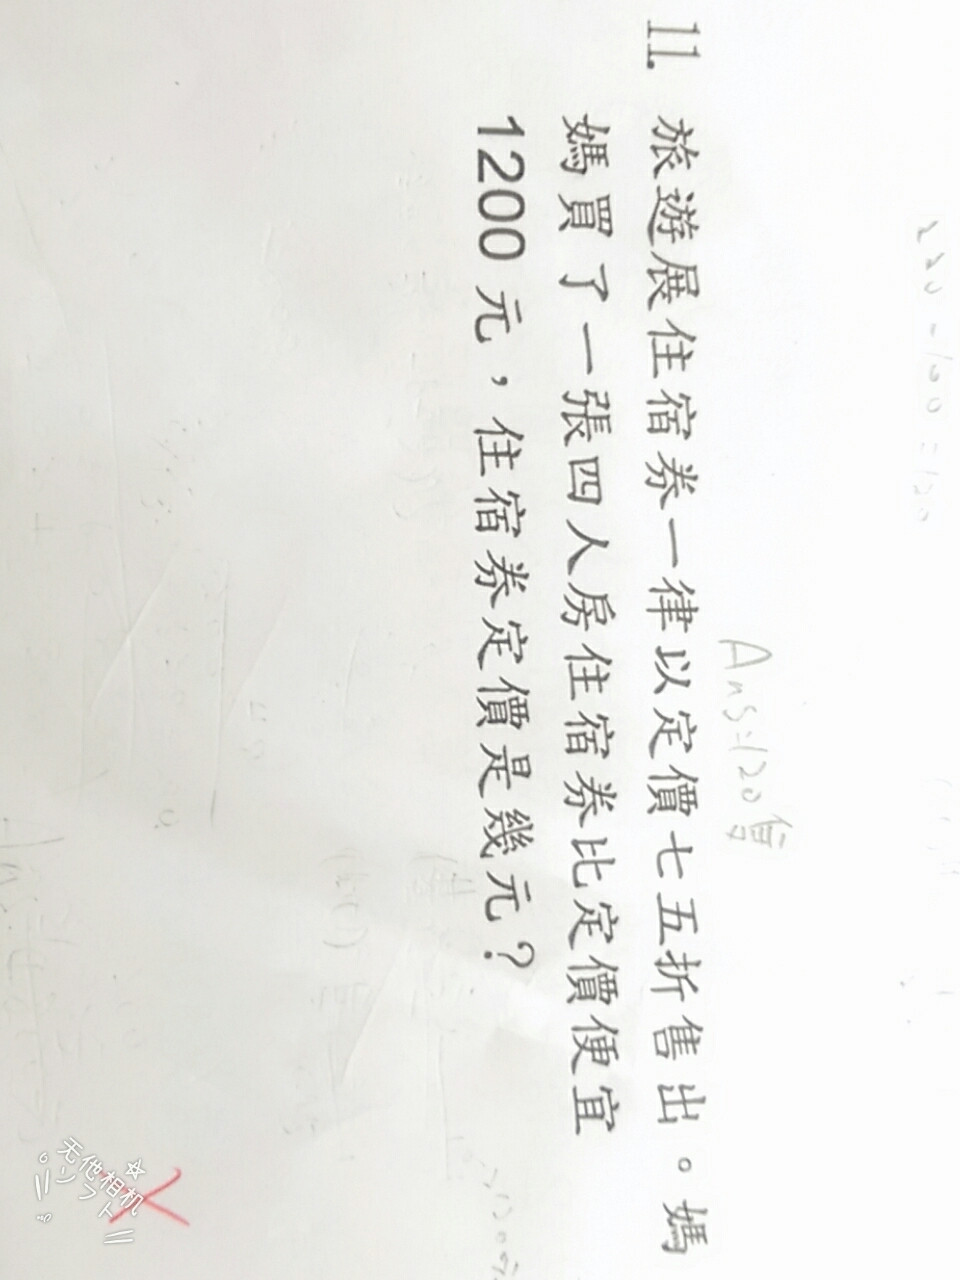 220-100=120
Ans=120
11. 旅遊展住宿券一律以定價七五折售出。媽
媽買了一張四人房住宿券比定價便宜
1200 元，住宿券定價是幾元？
无他相机